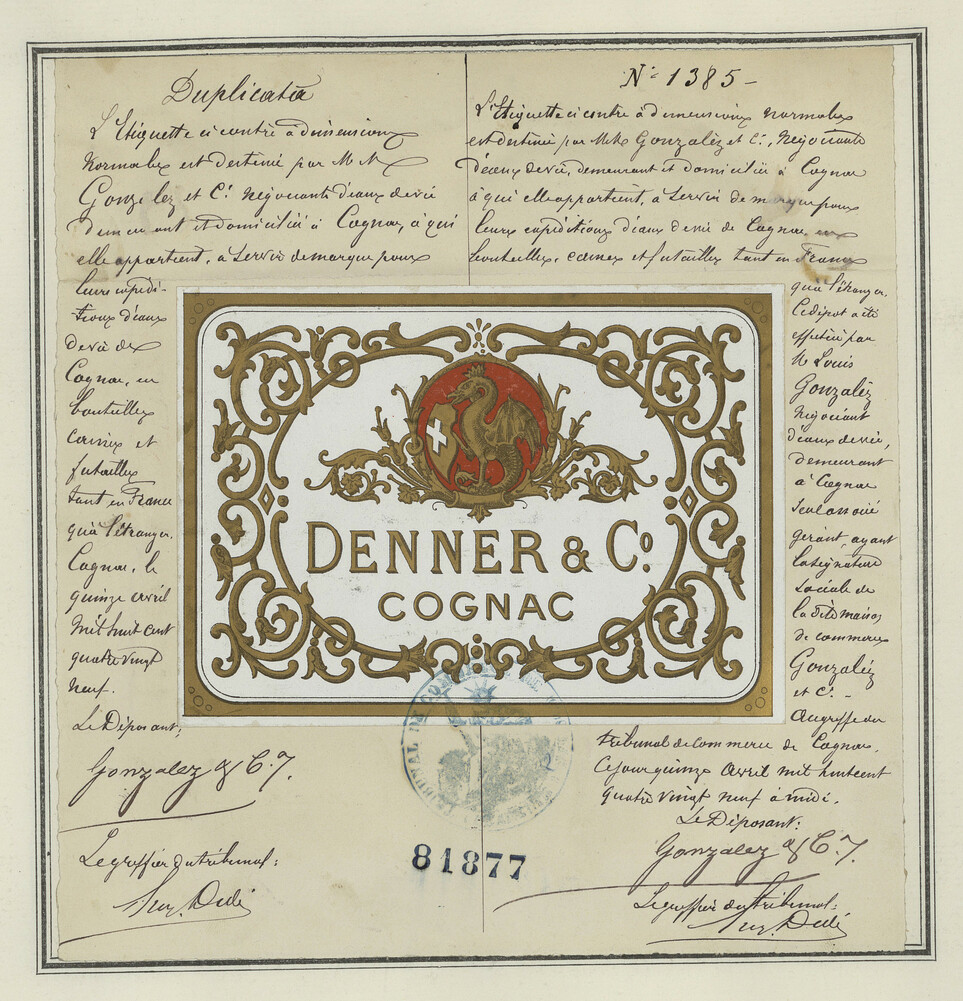 Duplicata
L'Etiquette ci contre à dimensions
normales est destiné par M M
Gonzalez et Cie négociants d'eaux de vie
demeurant et domicilié à Cognac, à qui
elle appartient, à servir de marque pour
leurs expédi-
tions d'eaux
de vie de
Cognac, en
bouteilles
caisses et
futailles
tant en France
qu'à l'étranger.
Cognac, le
quinze avril
mil huit cent
quatre vingt
neuf.
Le Déposant;
Gonzalez & C.
Le greffier du tribunal:
No 1385-
L'Etiquette ci contre à dimensions normales
est destiné par MM. Gonzalèz et Cie, Négociants
d'eaux de vie, demeurant et domicilié à Cognac
à qui elle appartient, à servir de marque pour
leurs expéditions d'eaux de vie de Cognac en
bouteilles, caisses et futailles tant en France
qu'à l'étranger.
Le dépot a été
effectué par
M Louis
Gonzalèz
Négociant
d'eaux de vie,
demeurant
à Cognac
seul associé
gérant, ayant
la signature
sociale de
la dite maison
de commerce
Gonzaléz
et Cie -
Au greffe du
tribunal de Commerce de Cognac.
Ce jour quinze Avril mil huit cent
quatre vingt neuf à midi.
Le Déposant:
Gonzalez & C.
Le greffier du tribunal:
DENNER & Co.
COGNAC
TRIBUNAL DE COMMERCE
81877